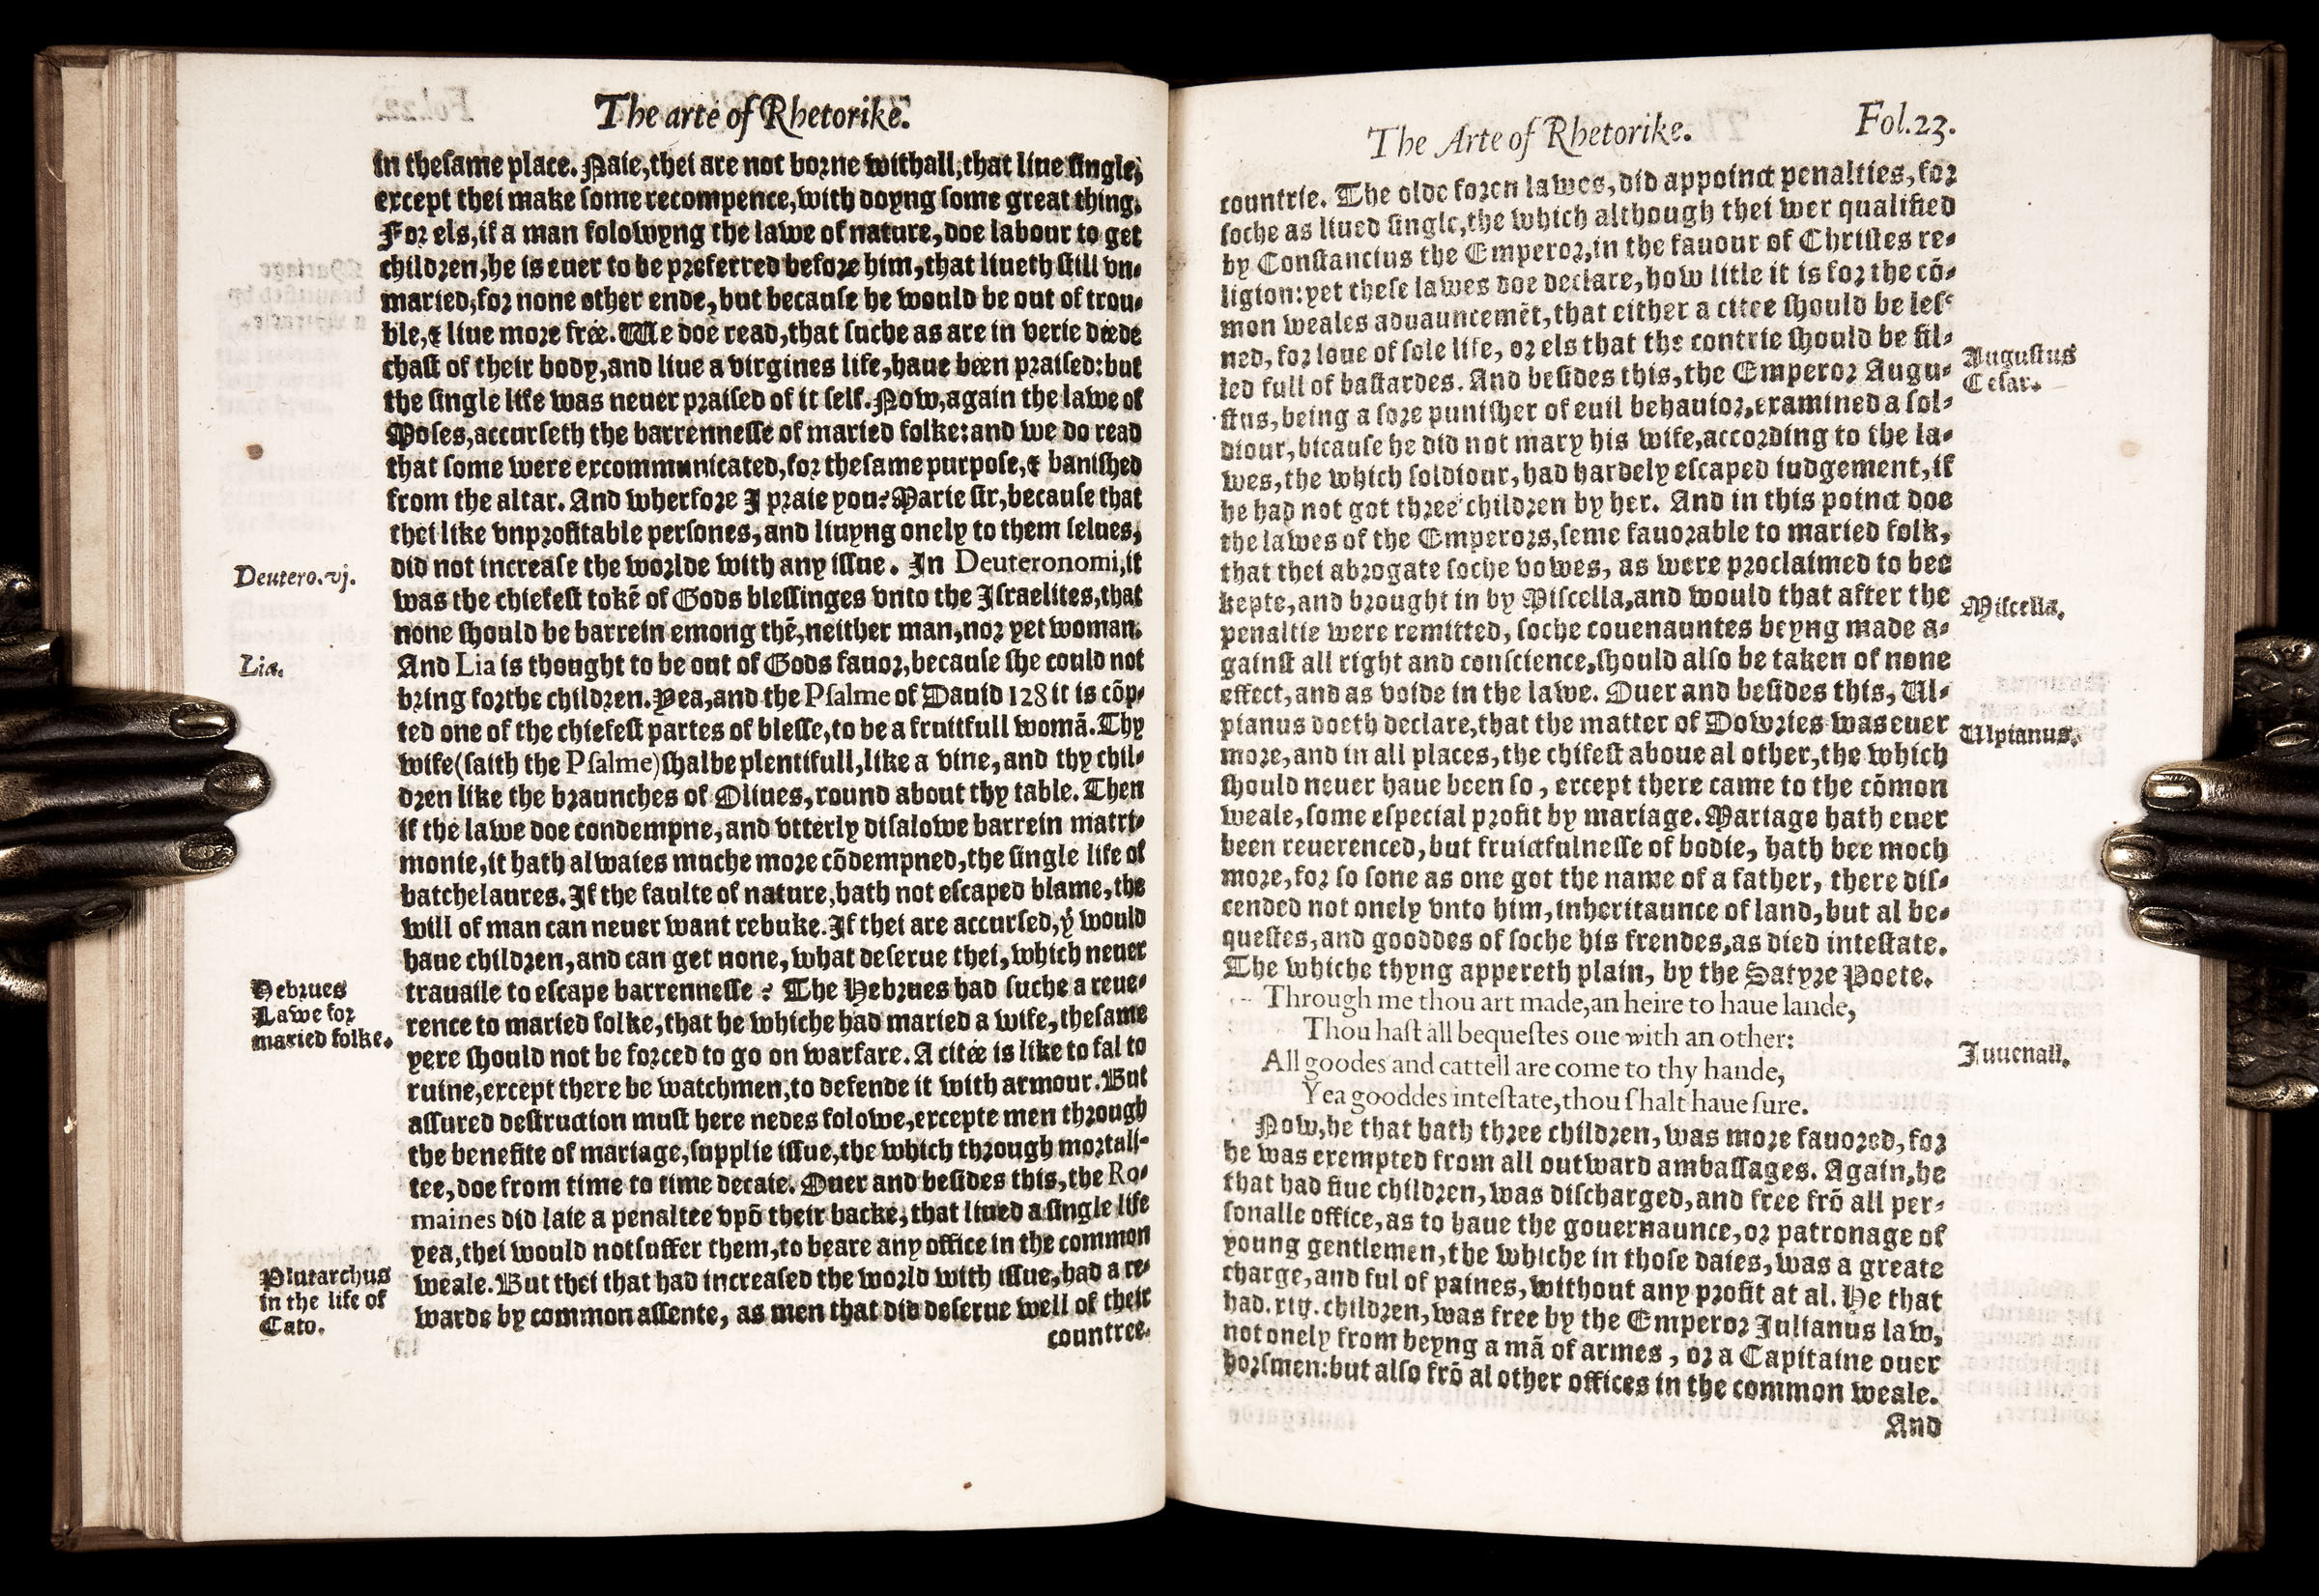 The arte of Rhetorike.
in thesame place. Naie, thei are not borne withall, that liue single,
except thei make some recompence, with doyng some great thing.
For els, if a man folowyng the lawe of nature, doe labour to get
children, he is euer to be preferred before him, that liueth still vn-
maried, for none other ende, but because he would be out of trou-
ble, & liue more free. We doe read, that suche as are in verie deede
chast of their body, and liue a virgines life, haue been praised: but
the single life was neuer praised of it self. Now, again the lawe of
Moses, accurseth the barrennesse of maried folke: and we do read
that some were excommunicated, for thesame purpose, & banished
from the altar. And wherfore I praie you? Marie sir, because that
thei like vnprofitable persones, and liuyng onely to them selues,
did not increase the worlde with any issue. In Deuteronomi, it
Deutero.vj.
was the chiefest tokẽ of Gods blessinges vnto the Israelites, that
none should be barrein emong thẽ, neither man, nor yet woman.
And Lia is thought to be out of Gods fauor, because she could not
Lia.
bring forthe children. Yea, and the Psalme of Dauid 128 it is cõp-
ted one of the chiefest partes of blesse, to be a fruitfull womã. Thy
wife (saith the Psalme) shalbe plentifull, like a vine, and thy chil-
dren like the braunches of Oliues, round about thy table. Then
if the lawe doe condempne, and vtterly disalowe barrein matri-
monie, it hath alwaies muche more cõdempned, the single life of
batchelaures. If the faulte of nature, hath not escaped blame, the
will of man can neuer want rebuke. If thei are accursed, yͭ would
haue children, and can get none, what deserue thei, which neuer
trauaile to escape barrennesse? The Hebrues had suche a reue-
Hebrues
Lawe for
maried folke.
rence to maried folke, that he whiche had maried a wife, thesame
yere should not be forced to go on warfare. A citee is like to fal to
ruine, except there be watchmen, to defende it with armour. But
assured destruction must here nedes folowe, excepte men through
the benefite of mariage, supplie issue, the which through mortali-
tee, doe from time to time decaie. Ouer and besides this, the Ro-
maines did laie a penaltee vpõ their backe, that liued a single life
yea, thei would not suffer them, to beare any office in the common
weale. But thei that had increased the world with issue, had a re-
Plutarchus
in the life of
Cato.
warde by common assente, as men that did deserue well of their
countree.
The Arte of Rhetorike.
Fol.23.
countrie. The olde foren lawes, did appoinct penalties, for
soche as liued single, the which although thei wer qualified
by Constancius the Emperor, in the fauour of Christes re-
ligion: yet these lawes doe declare, how litle it is for the cõ-
mon weales aduauncemẽt, that either a citee should be les-
ned, for loue of sole life, or els that the contrie should be fil-
led full of bastardes. And besides this, the Emperor Augu-
Augustus
Cesar.
stus, being a sore punisher of euil behauior, examined a sol-
diour, bicause he did not mary his wife, according to the la-
wes, the which soldiour, had hardely escaped iudgement, if
he had not got three children by her. And in this poinct doe
the lawes of the Emperors, seme fauorable to maried folk,
that thei abrogate soche vowes, as were proclaimed to bee
kepte, and brought in by Miscella, and would that after the
Miscella.
penaltie were remitted, soche couenauntes beyng made a-
gainst all right and conscience, should also be taken of none
effect, and as voide in the lawe. Ouer and besides this, Ul-
pianus doeth declare, that the matter of Dowries was euer
Ulpianus.
more, and in all places, the chifest aboue al other, the which
should neuer haue been so, except there came to the cõmon
weale, some especial profit by mariage. Mariage hath euer
been reuerenced, but fruictfulnesse of bodie, hath bee moch
more, for so sone as one got the name of a father, there dis-
cended not onely vnto him, inheritaunce of land, but al be-
questes, and gooddes of soche his frendes, as died intestate.
The whiche thyng appereth plain, by the Satyre Poete.
Through me thou art made, an heire to haue lande,
Thou hast all bequestes one with an other:
Iuuenall.
All goodes and cattell are come to thy hande,
Yea gooddes intestate, thou shalt haue sure.
Now, he that hath three children, was more fauored, for
he was exempted from all outward ambassages. Again, he
that had fiue children, was discharged, and free frõ all per-
sonalle office, as to haue the gouernaunce, or patronage of
young gentlemen, the whiche in those daies, was a greate
charge, and ful of paines, without any profit at al. He that
had. xiij. children, was free by the Emperor Iulianus law,
not onely from beyng a mã of armes, or a Capitaine ouer
horsmen: but also frõ al other offices in the common weale.
And